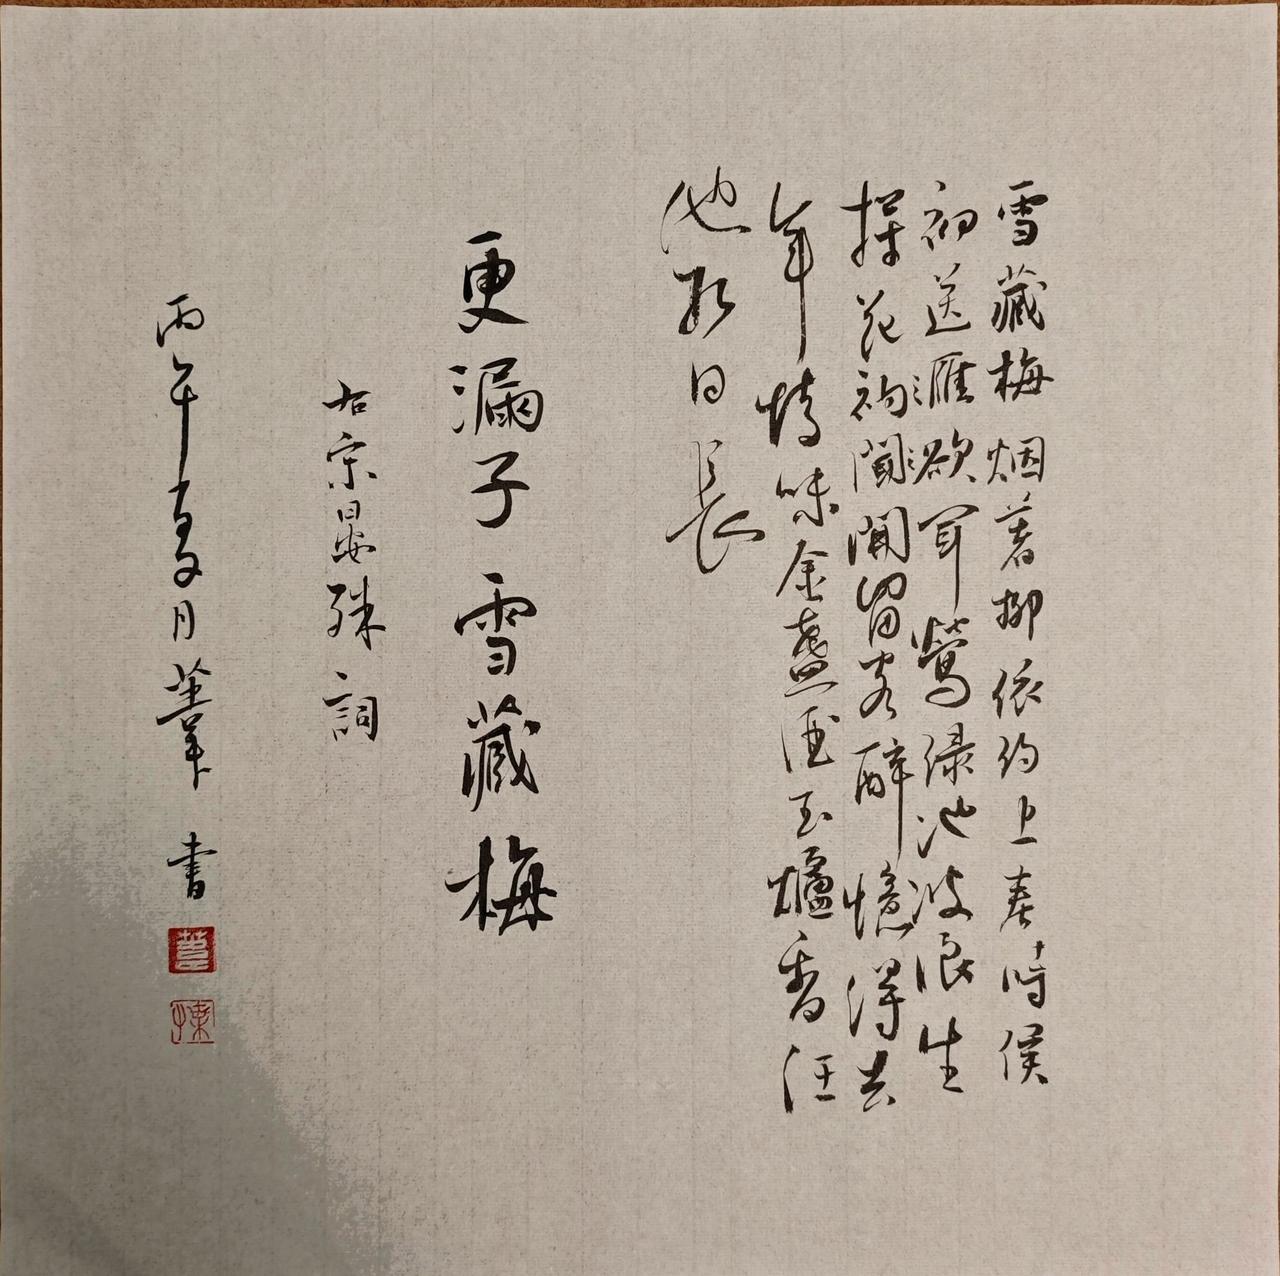 雪藏梅烟著柳依约上春時候
初送雁欲闻鶯绿池波浪生
探花初聞開留客醉憶得去
年情味金盏酒玉爐香任
他红日長
更漏子 雪藏梅
右宋晏殊詞
丙午夏月 書